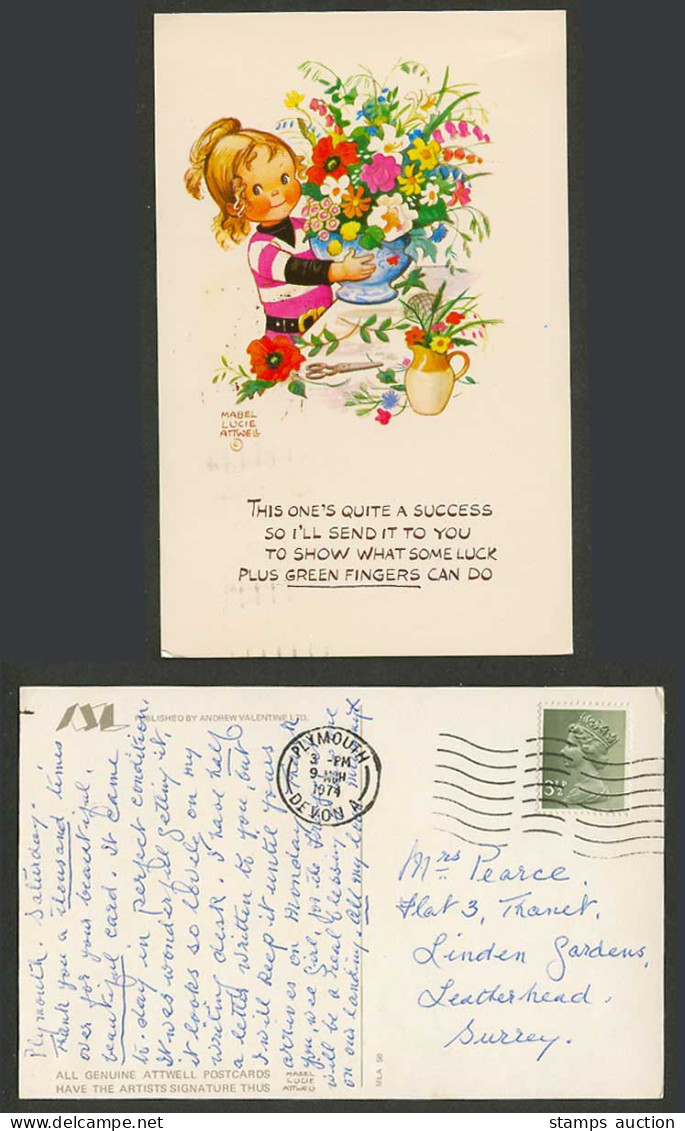 MABEL
LUCIE
ATTWELL
©
THIS ONE'S QUITE A SUCCESS
SO I'LL SEND IT TO YOU
TO SHOW WHAT SOME LUCK
PLUS GREEN FINGERS CAN DO
PUBLISHED BY ANDREW VALENTINE LTD.
Plymouth. Saturday.
Thank you a thousand times
over for your beautiful,
beautiful card. It came
to-day in perfect condition.
It was wonderful getting it.
it looks so lovely on my
writing desk. I have half
a letter written to you, but
I will keep it until yours
arrives on Monday.
you, wee girl, for the
will be a real blessing
on our landing. All my love
ALL GENUINE ATTWELL POSTCARDS
HAVE THE ARTISTS SIGNATURE THUS
MABEL
LUCIE
ATTWELL
MLA 56
PLYMOUTH
3 - PM
9 - MCH
1974
DEVON A
3½P
Mrs Pearce.
Flat 3, Thanet,
Linden Gardens,
Leatherhead.
Surrey.
stamps auction